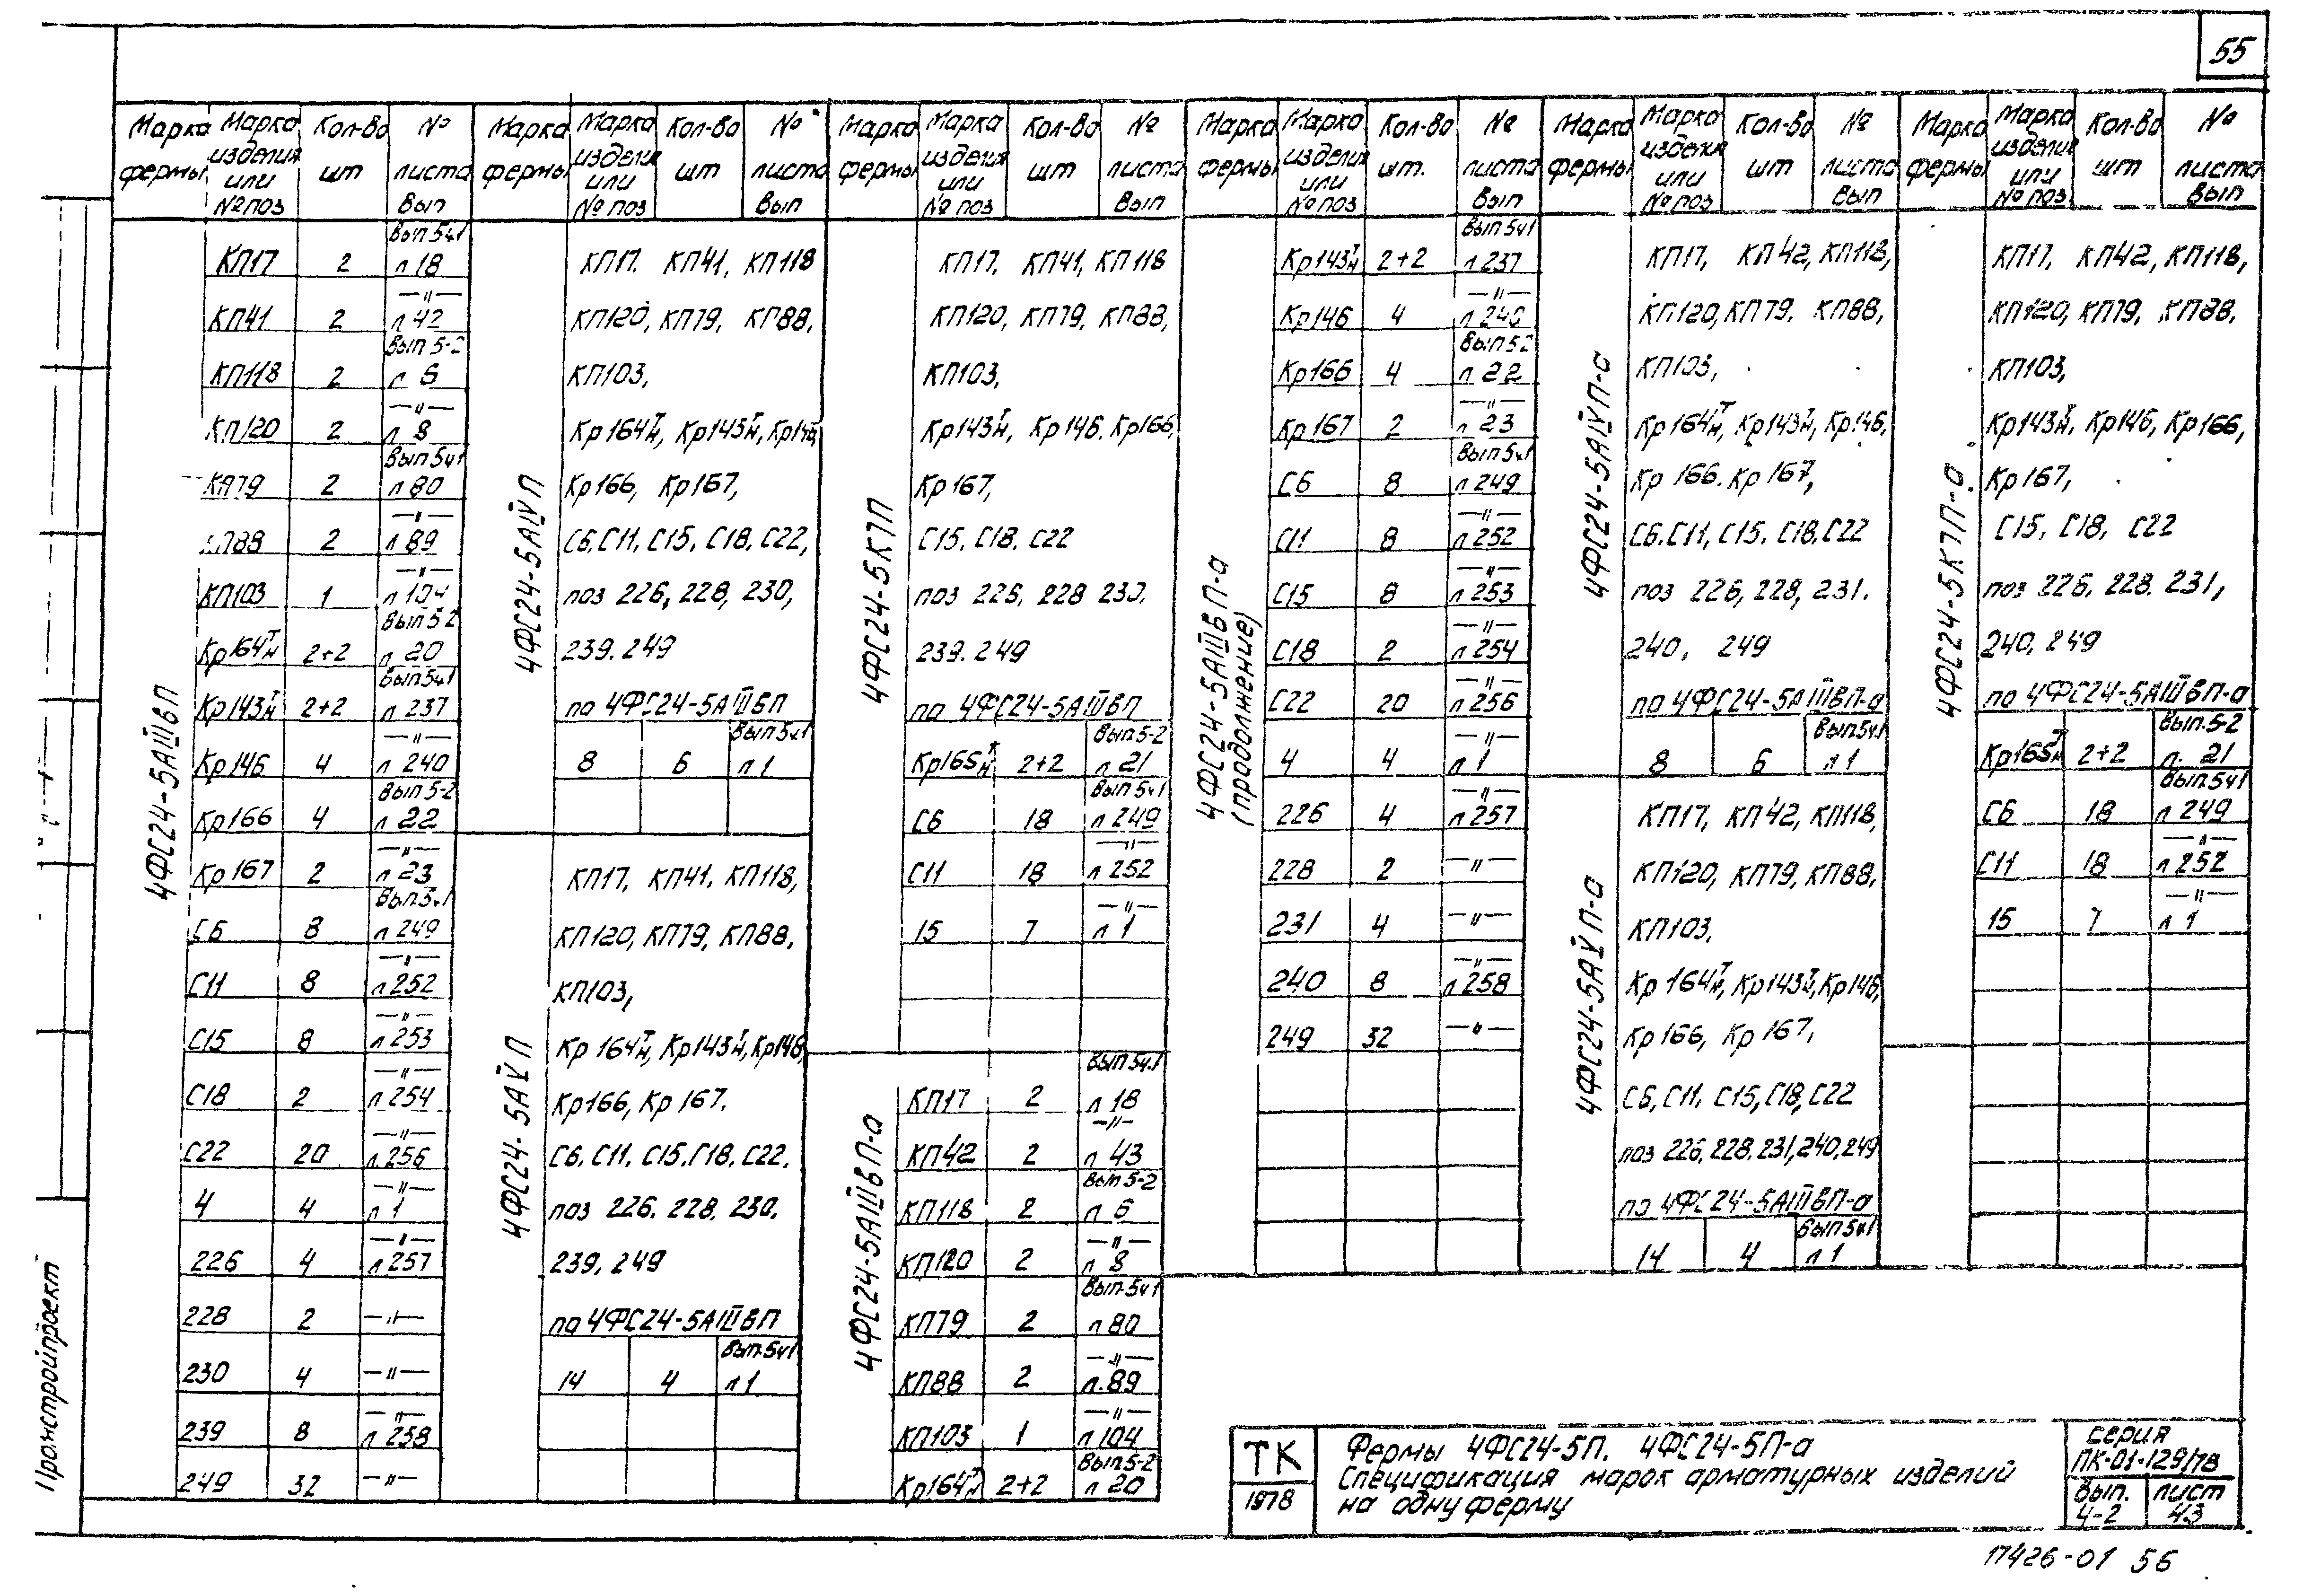 55
Марка фермы | Марка изделия или № поз | Кол-во шт | № листа Вып
4ФС24-5АIIIвП
КП17 | 2 | Вып 5ч1 л 18
КП41 | 2 | —"— л 42
КП118 | 2 | Вып 5-2 л 6
КП120 | 2 | —"— л 8
КП79 | 2 | Вып 5ч1 л 80
КП88 | 2 | —"— л 89
КП103 | 1 | —"— л 104
Кр164 т/н | 2+2 | Вып 5-2 л. 20
Кр143 т/н | 2+2 | Вып 5ч1 л 237
Кр146 | 4 | —"— л 240
Кр166 | 4 | Вып 5-2 л 22
Кр167 | 2 | —"— л 23
С6 | 8 | Вып.5ч1 л 249
С11 | 8 | —"— л 252
С15 | 8 | —"— л 253
С18 | 2 | —"— л 254
С22 | 20 | —"— л.256
4 | 4 | —"— л 1
226 | 4 | —"— л 257
228 | 2 | —"—
230 | 4 | —"—
239 | 8 | —"— л 258
249 | 32 | —"—
Марка фермы | Марка изделия или № поз | Кол-во шт | № листа Вып
4ФС24-5АIVП
КП17. КП41, КП118
КП120, КП79, КП88,
КП103,
Кр164 т/н, Кр143 т/н, Кр146
Кр166, Кр167,
С6, С11, С15, С18, С22,
поз 226, 228, 230,
239. 249
по 4ФС24-5АIIIвП
8 | 6 | Вып 5ч1 л 1
4ФС24-5АVП
КП17, КП41, КП118,
КП120, КП79, КП88,
КП103,
Кр164 т/н, Кр143 т/н, Кр146,
Кр166, Кр167.
С6, С11, С15, С18, С22.
поз 226. 228, 230.
239, 249
по 4ФС24-5АIIIвП
14 | 4 | Вып.5ч1 л 1
Марка фермы | Марка изделия или № поз | Кол-во шт | № листа Вып
4ФС24-5К7П
КП17. КП41, КП118
КП120, КП79, КП88,
КП103,
Кр143 т/н, Кр146. Кр166,
Кр167,
С15, С18. С22
поз 226, 228 230,
239. 249
по 4ФС24-5АIIIвП
Кр165 т/н | 2+2 | Вып.5-2 л 21
С6 | 18 | Вып 5ч1 л 249
С11 | 18 | —"— л 252
15 | 7 | —"— л 1
4ФС24-5АIIIвП-а
КП17 | 2 | Вып 5ч.1 л 18
КП42 | 2 | —"— л 43
КП118 | 2 | Вып 5-2 л 6
КП120 | 2 | —"— л 8
КП79 | 2 | Вып.5ч1 л 80
КП88 | 2 | —"— л.89
КП103 | 1 | —"— л 104
Кр164 т/н | 2+2 | Вып 5-2 л 20
Марка фермы | Марка изделия или № поз | Кол-во шт. | № листа Вып
4ФС24-5АIIIвП-а
(продолжение)
Кр143 т/н | 2+2 | Вып 5ч1 л 237
Кр146 | 4 | —"— л 240
Кр166 | 4 | Вып 5-2 л 22
Кр167 | 2 | —"— л 23
С6 | 8 | Вып 5ч1 л 249
С11 | 8 | —"— л 252
С15 | 8 | —"— л 253
С18 | 2 | —"— л 254
С22 | 20 | —"— л 256
4 | 4 | —"— л 1
226 | 4 | —"— л 257
228 | 2 | —"—
231 | 4 | —"—
240 | 8 | —"— л 258
249 | 32 | —"—
Марка фермы | Марка изделия или № поз | Кол-во шт | № листа Вып
4ФС24-5АIVП-а
КП17, КП42, КП118,
КП120, КП79, КП88,
КП103,
Кр164 т/н, Кр143 т/н, Кр146,
Кр166. Кр167,
С6, С11, С15, С18, С22
поз 226, 228, 231.
240, 249
по 4ФС24-5АIIIвП-а
8 | 6 | Вып5ч1 л 1
4ФС24-5АVП-а
КП17, КП42, КП118,
КП120, КП79, КП88,
КП103,
Кр164 т/н, Кр143 т/н, Кр146,
Кр166, Кр167,
С6, С11, С15, С18, С22
поз 226, 228, 231, 240, 249
по 4ФС24-5АIIIвП-а
14 | 4 | Вып5ч1 л 1
Марка фермы | Марка изделия или № поз | Кол-во шт | № листа Вып
4ФС24-5К7П-а
КП17, КП42, КП118,
КП120, КП79, КП88,
КП103,
Кр143 т/н, Кр146, Кр166,
Кр167,
С15, С18, С22
поз 226, 228. 231,
240, 249
по 4ФС24-5АIIIвП-а
Кр165 т/н | 2+2 | Вып.5-2 л. 21
С6 | 18 | Вып.5ч1 л 249
С11 | 18 | —"— л 252
15 | 7 | —"— л 1
Промстройпроект
ТК
1978
Фермы 4ФС24-5П. 4ФС24-5П-а
Спецификация марок арматурных изделий
на одну ферму
серия
ПК-01-129/78
Вып. 4-2
лист 43
17426-01 56